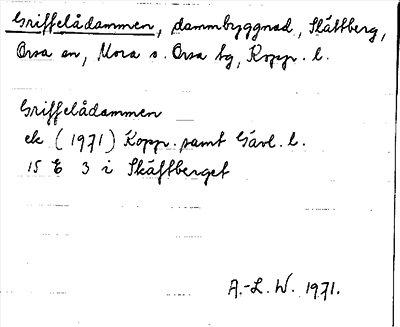 Griffelådammen, dammbyggnad, Slättberg,
Orsa sn, Mora o. Orsa tg, Kopp. l.
Griffelådammen
ek (1971) Kopp. samt Gävl. l.
15 E 3 i Skåftberget
A.-L. W. 1971.